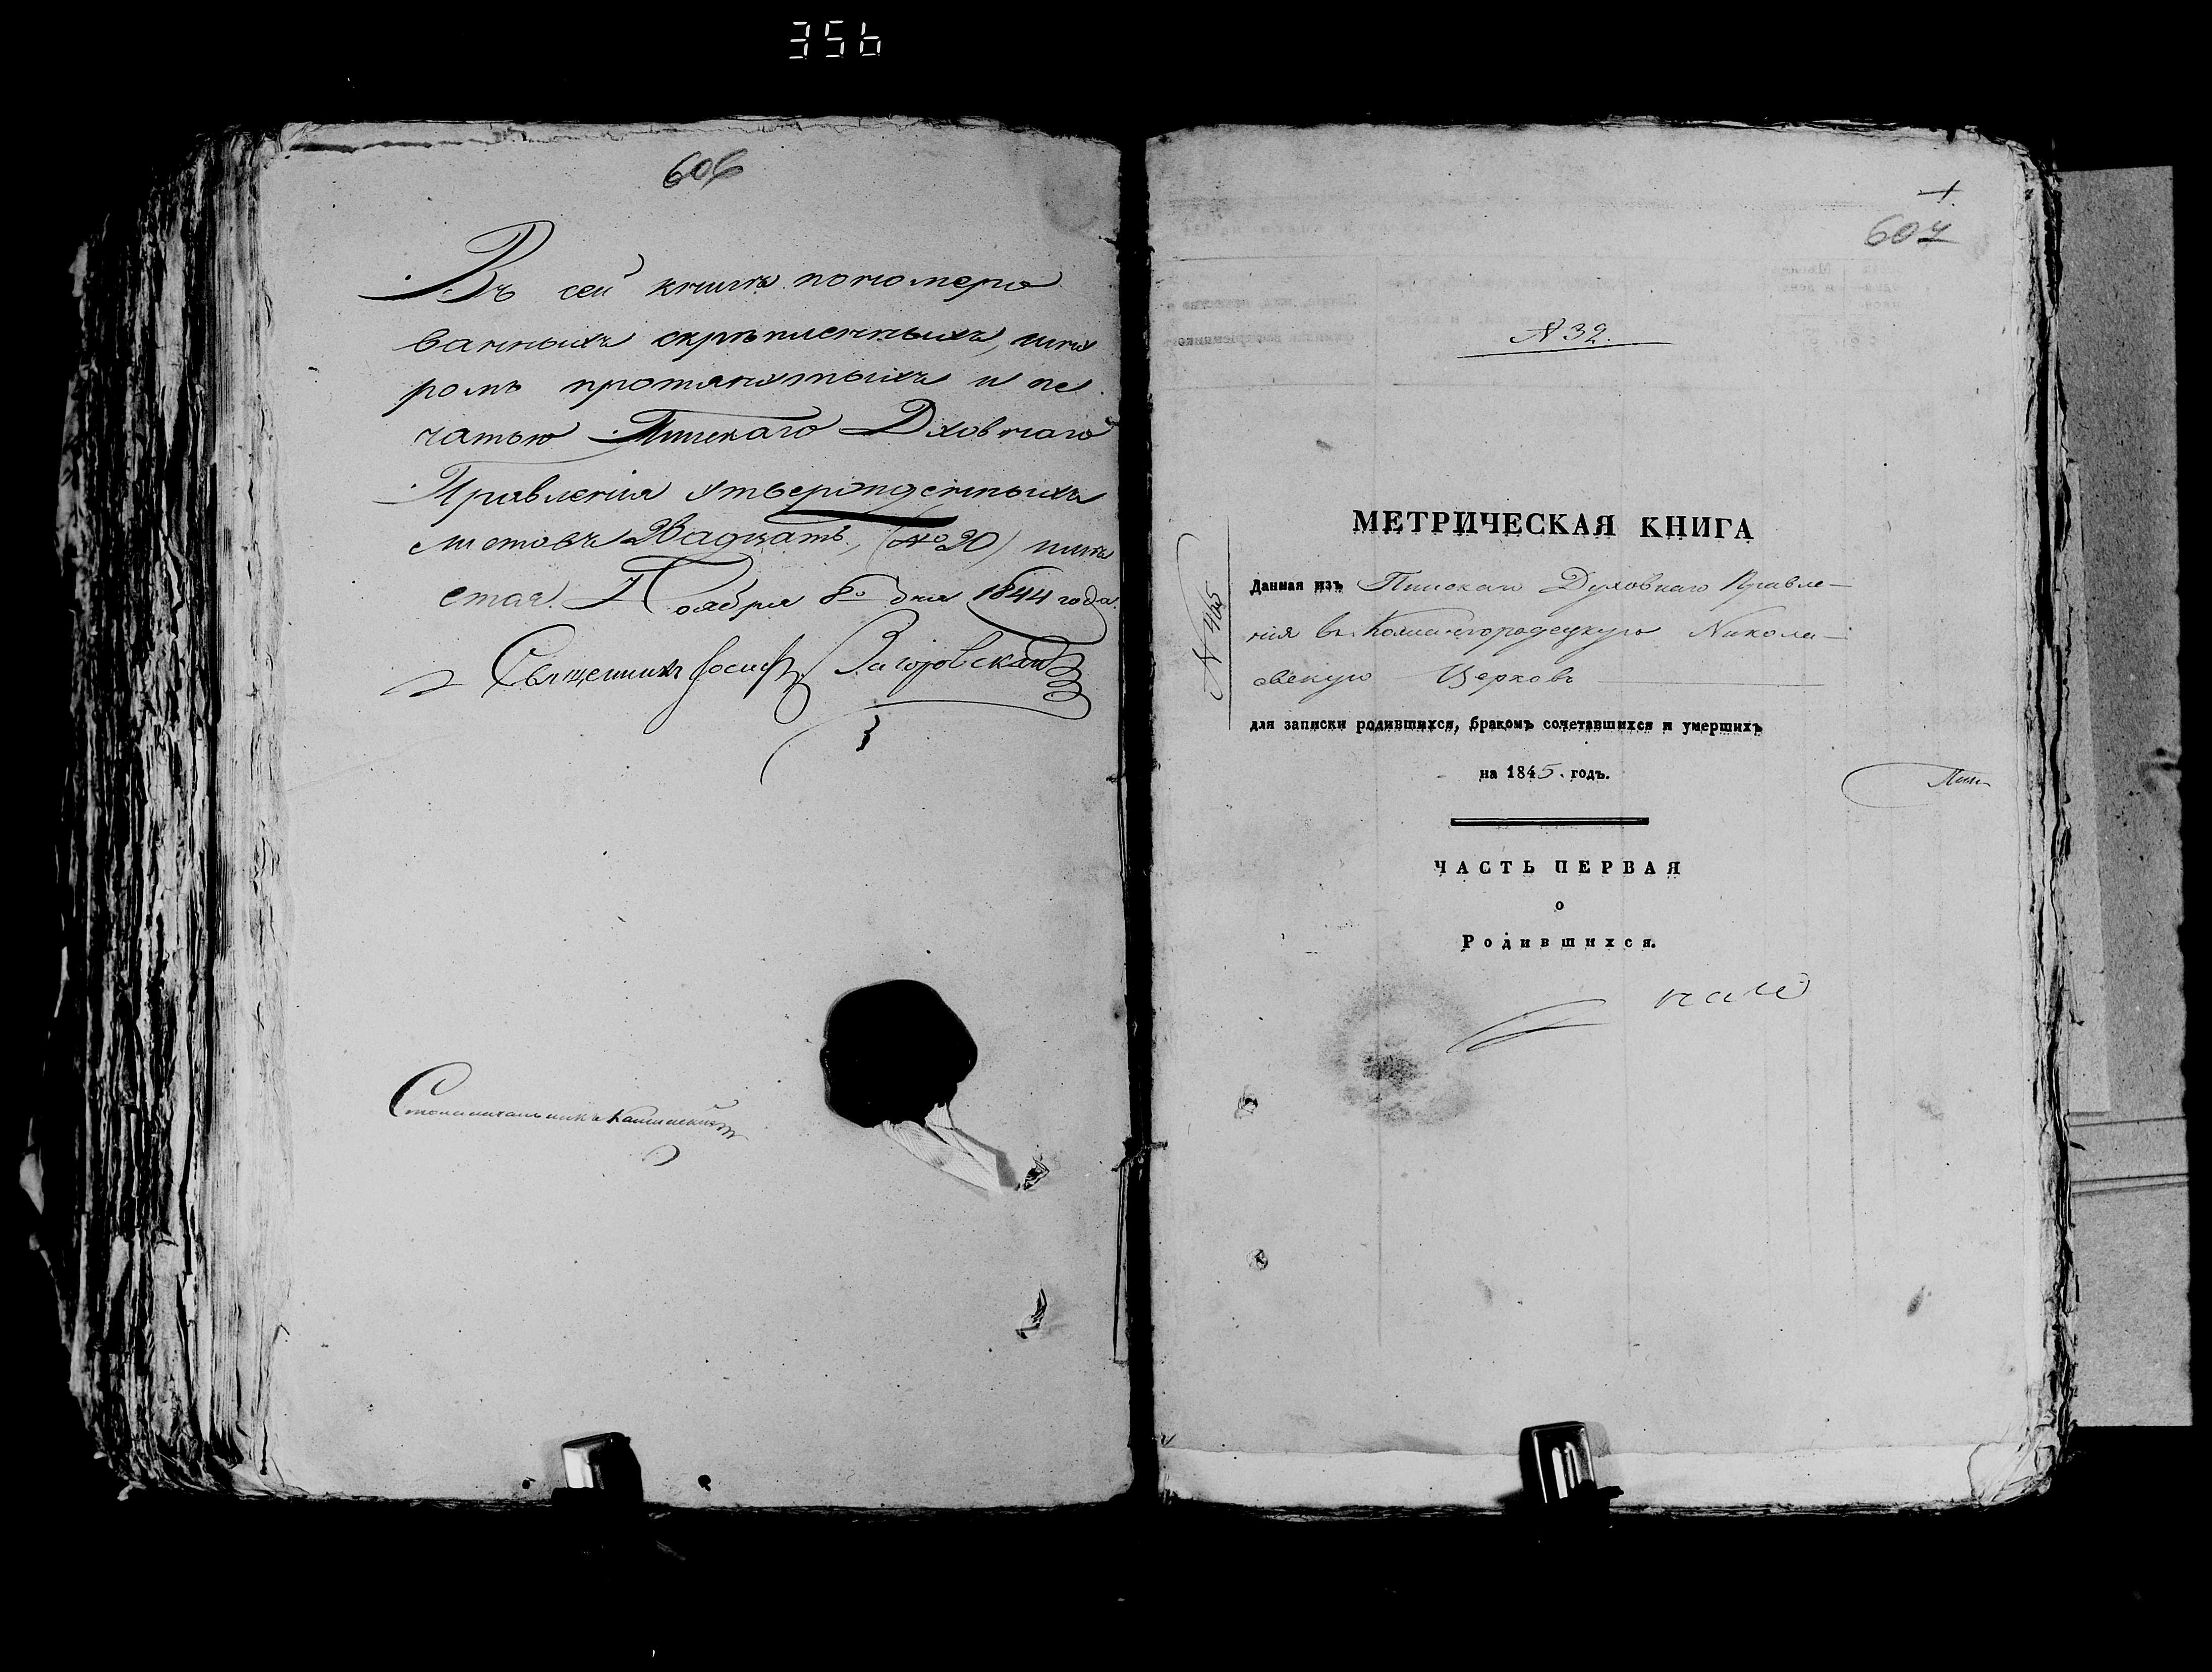 356
606
Въ сей книгѣ пономеро
ванныхъ скрѣпленныхъ, шну
ромъ протянутыхъ и пе
чатью Пинскаго Духовнаго
Правленія утвержденныхъ
листовъ двадцать, (№ 20)
Ноября 8го дня 1844 года.
Священникъ Іосифъ Загоровскій
Столоначальникъ
607
N 32.
N 465
МЕТРИЧЕСКАЯ КНИГА
Данная изъ Пинскаго Духовнаго Правле-
нія въ Кожангородецкую Никола-
евскую Церковь
для записки родившихся, бракомъ сочетавшихся и умершихъ
на 1845. годъ.
Пин-
ЧАСТЬ ПЕРВАЯ
о
Родившихся.